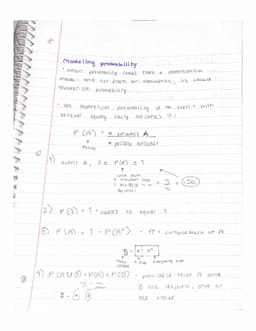 Modelling probability
• when probability comes from a mathematical
model, and not from an experiment, its called
theoretical probability
• the theoretical probability of an event with
several equally likely outcomes is:
P(A) = # outcomes A
# possible outcomes
1) event A, 0 ≤ P(A) ≤ 1
= 5 = .50
10
2) P(S) = 1 • needs to equal 1
3) P(A) = 1 - P(Aᶜ) • Aᶜ = complement of A
S = A Aᶜ
4) P(A∪B) = P(A) + P(B) • provided that A and
B are disjoint, one or
the other
S =